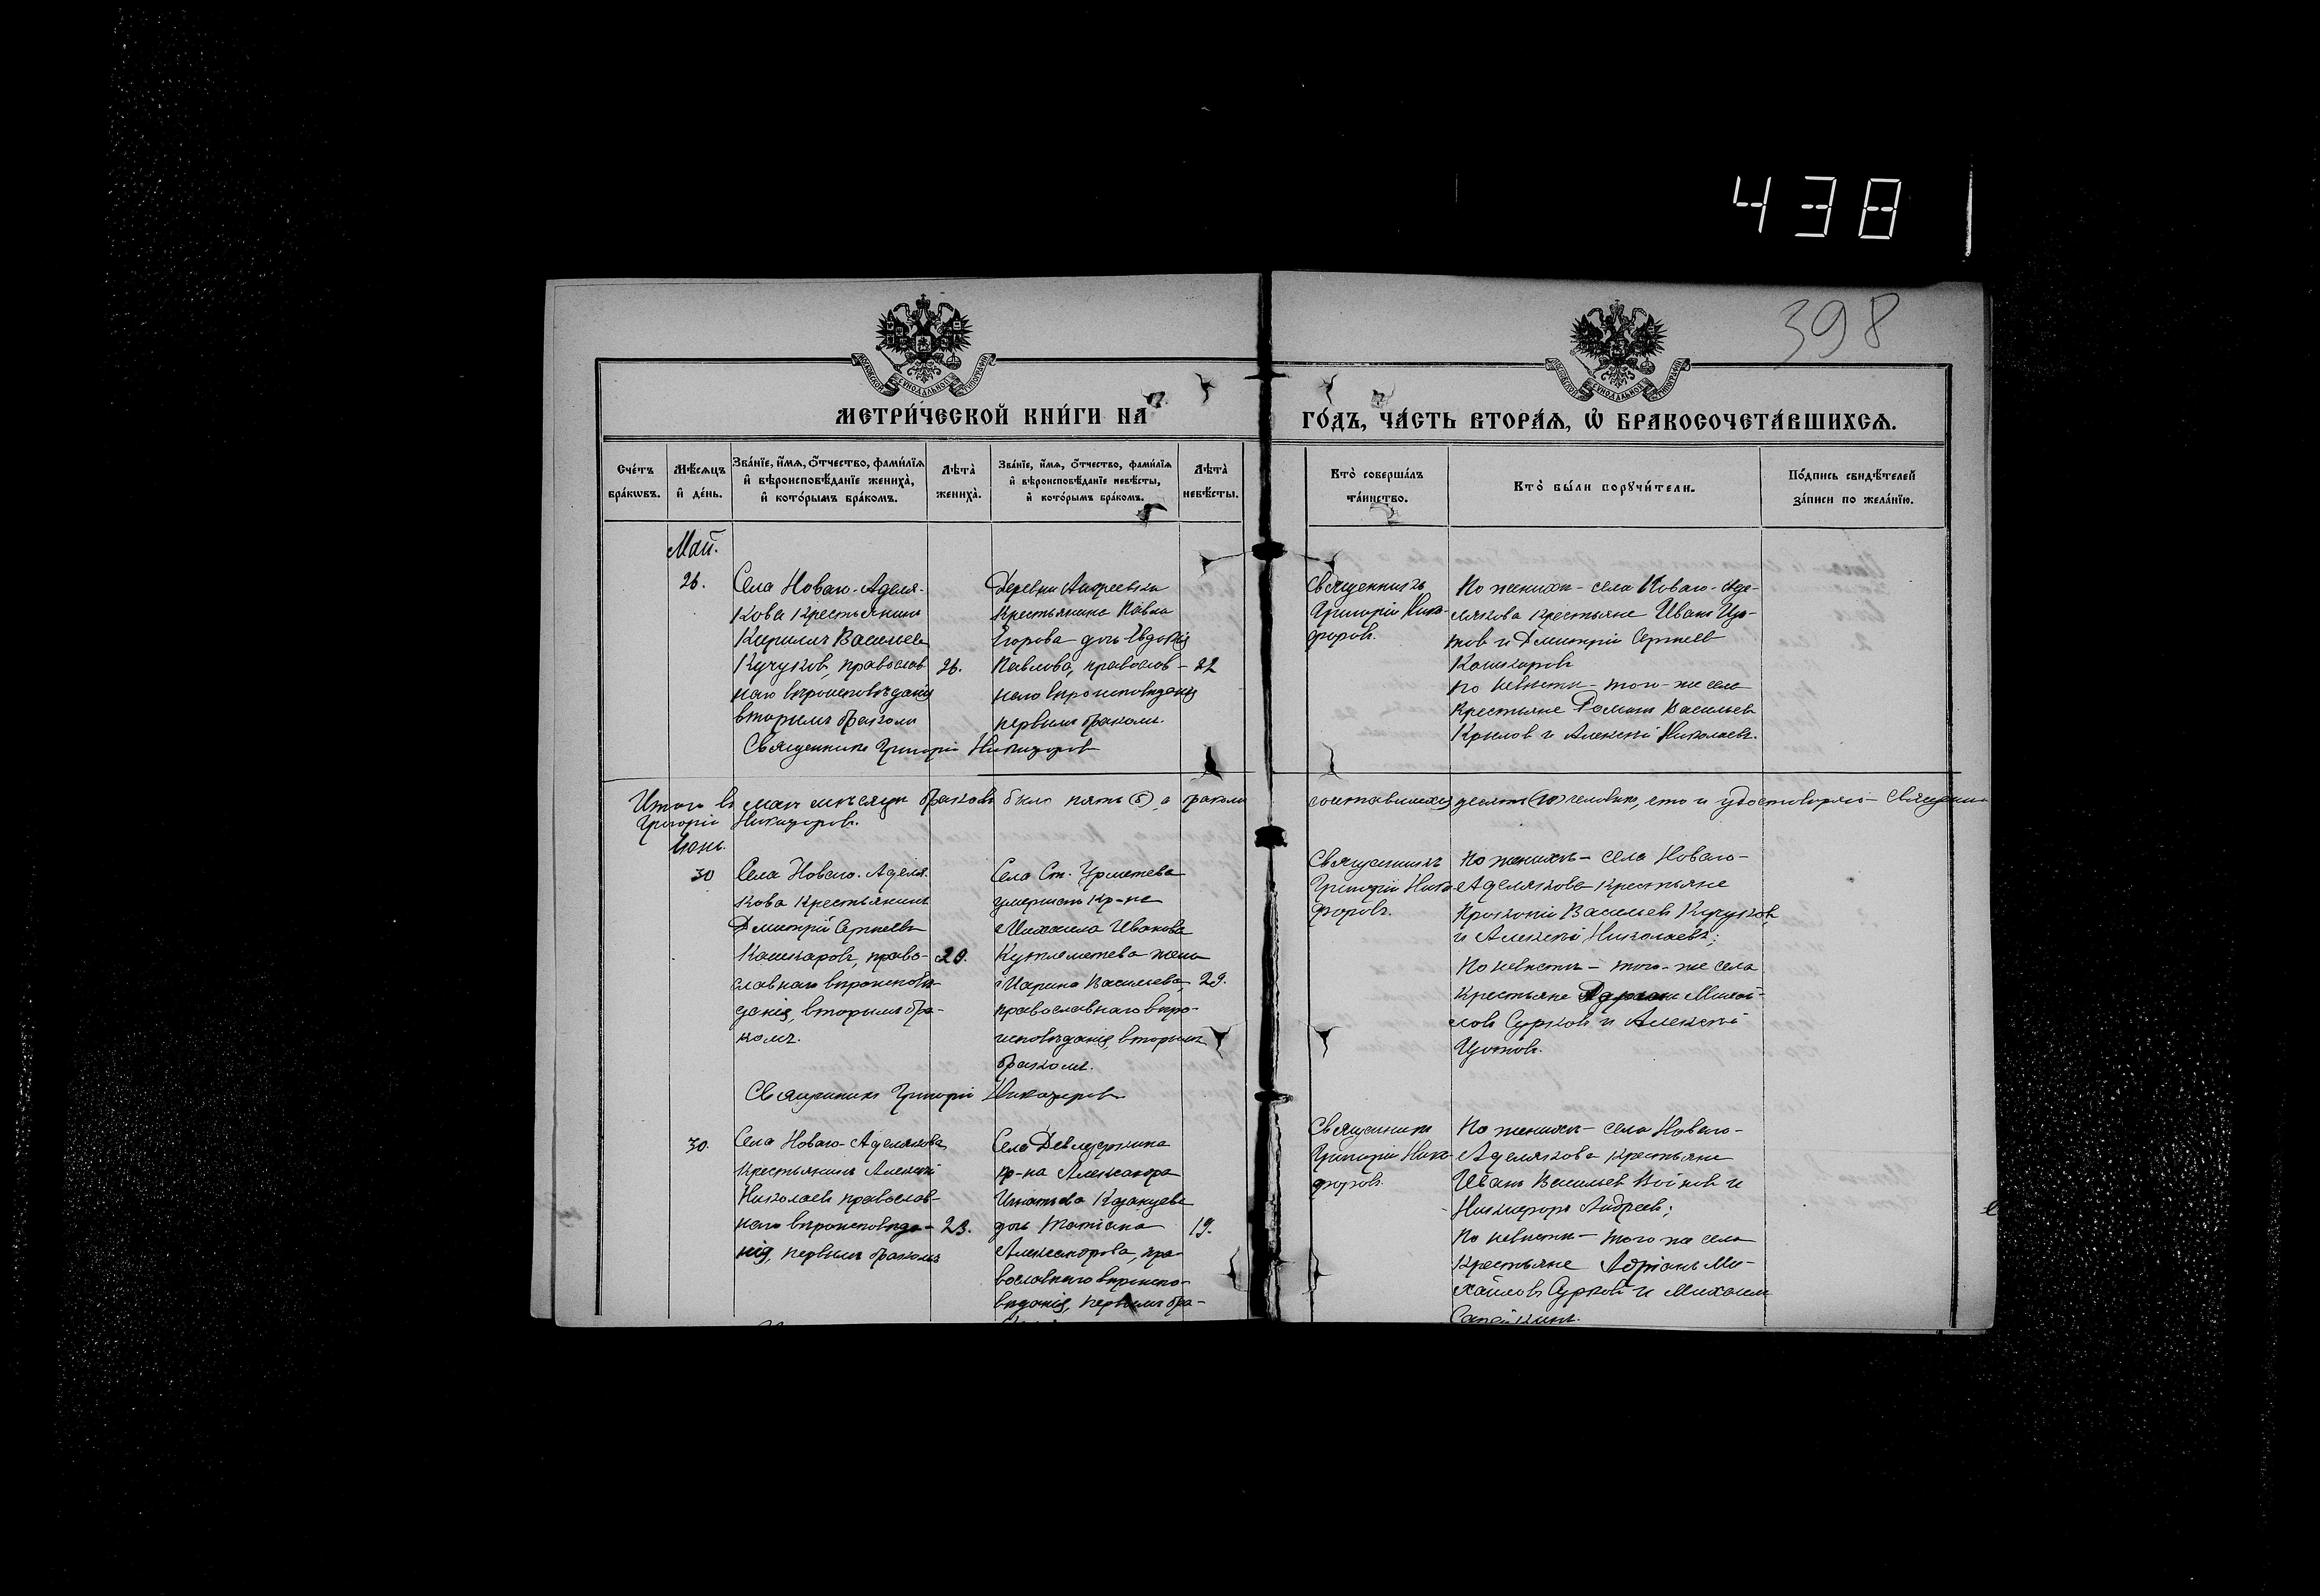 438
398
МЕТРИ́ЧЕСКОЙ КНИ́ГИ НА
ГО́ДЪ, ЧА́СТЬ ВТОРА́Ѧ, Ѽ БРАКОСОЧЕТА́ВШИХСѦ.
Сче́тъ бра́кѡвъ.
Мѣ́сѧцъ и҆ де́нь.
Зва́нїе, и҆́мѧ, ѻ҆́тчество, фами́лїѧ
и҆ вѣроисповѣ́данїе жениха̀,
и҆ кото́рымъ бра́комъ.
Лѣта̀ жениха̀.
Зва́нїе, и҆́мѧ, ѻ҆́тчество, фами́лїѧ
и҆ вѣроисповѣ́данїе невѣ́сты,
и҆ кото́рымъ бра́комъ.
Лѣта̀ невѣ́сты.
Кто̀ соверша́лъ та́инство.
Кто̀ бы́ли порꙋчи́тели.
По́дпись свидѣ́телей за́писи по жела́нїю.
Май.
26.
Села Новаго-Аделя-
кова крестьянинъ
Кириллъ Васильевъ
Кучуковъ, православ
наго вѣроисповѣданія
вторымъ бракомъ
26.
Деревни Андреевки
крестьянина Павла
Егорова дочь Евдокія
Павлова, православ-
наго вѣроисповѣданія
первымъ бракомъ.
22
Священникъ Григорій Никифоровъ
Священникъ
Григорій Ники-
форовъ.
По женихѣ - села Новаго-Аде-
лякова крестьяне Иванъ
и Дмитрій Сергѣевъ
Кашкаровъ
по невѣстѣ - того-же села
крестьяне Романъ Васильев
Крылов и Алексѣй Николаевъ.
Итого въ маѣ мѣсяцѣ браковъ было пять (5) а бракомъ сочетавшихся десять (10) человѣкъ, что и удостовѣряю - Священникъ
Григорій Никифоровъ.
Іюнь.
30
Села Новаго-Аделя-
кова крестьянинъ
Дмитрій Сергѣевъ
Кашкаровъ, право-
славнаго вѣроисповѣ-
данія, вторымъ бра-
комъ.
29.
Села Ст. Урметева
умершаго кр-на
Михаила Иванова
Кутлеметева жена
Марина Васильева,
православнаго вѣро-
исповѣданія, вторымъ
бракомъ.
29.
Священникъ Григорій Никифоровъ
Священникъ
Григорій Ники-
форовъ.
По женихѣ - села Новаго-
Аделякова крестьяне
Прокопій Васильевъ Кучуков
и Алексѣй Николаевъ;
По невѣстѣ - того-же села
крестьяне Адріанъ Михай-
ловъ Сурковъ и Алексѣй
30.
Села Новаго-Аделякова
крестьянинъ Алексѣй
Николаевъ православ-
наго вѣроисповѣда-
нія, первымъ бракомъ
23.
Села Девлезеркина
кр-на Александра
Игнатьева Казанцева
дочь Татіана
Александрова, пра-
вославнаго вѣроиспо-
вѣданія, первымъ бра-
19.
Священникъ
Григорій Ники-
форовъ.
По женихѣ - села Новаго-
Аделякова крестьяне
Иванъ Васильев Войнов и
Никифоръ Андреев;
По невѣстѣ - того же села
крестьяне Адріанъ Ми-
хайловъ Сурков и Михаил